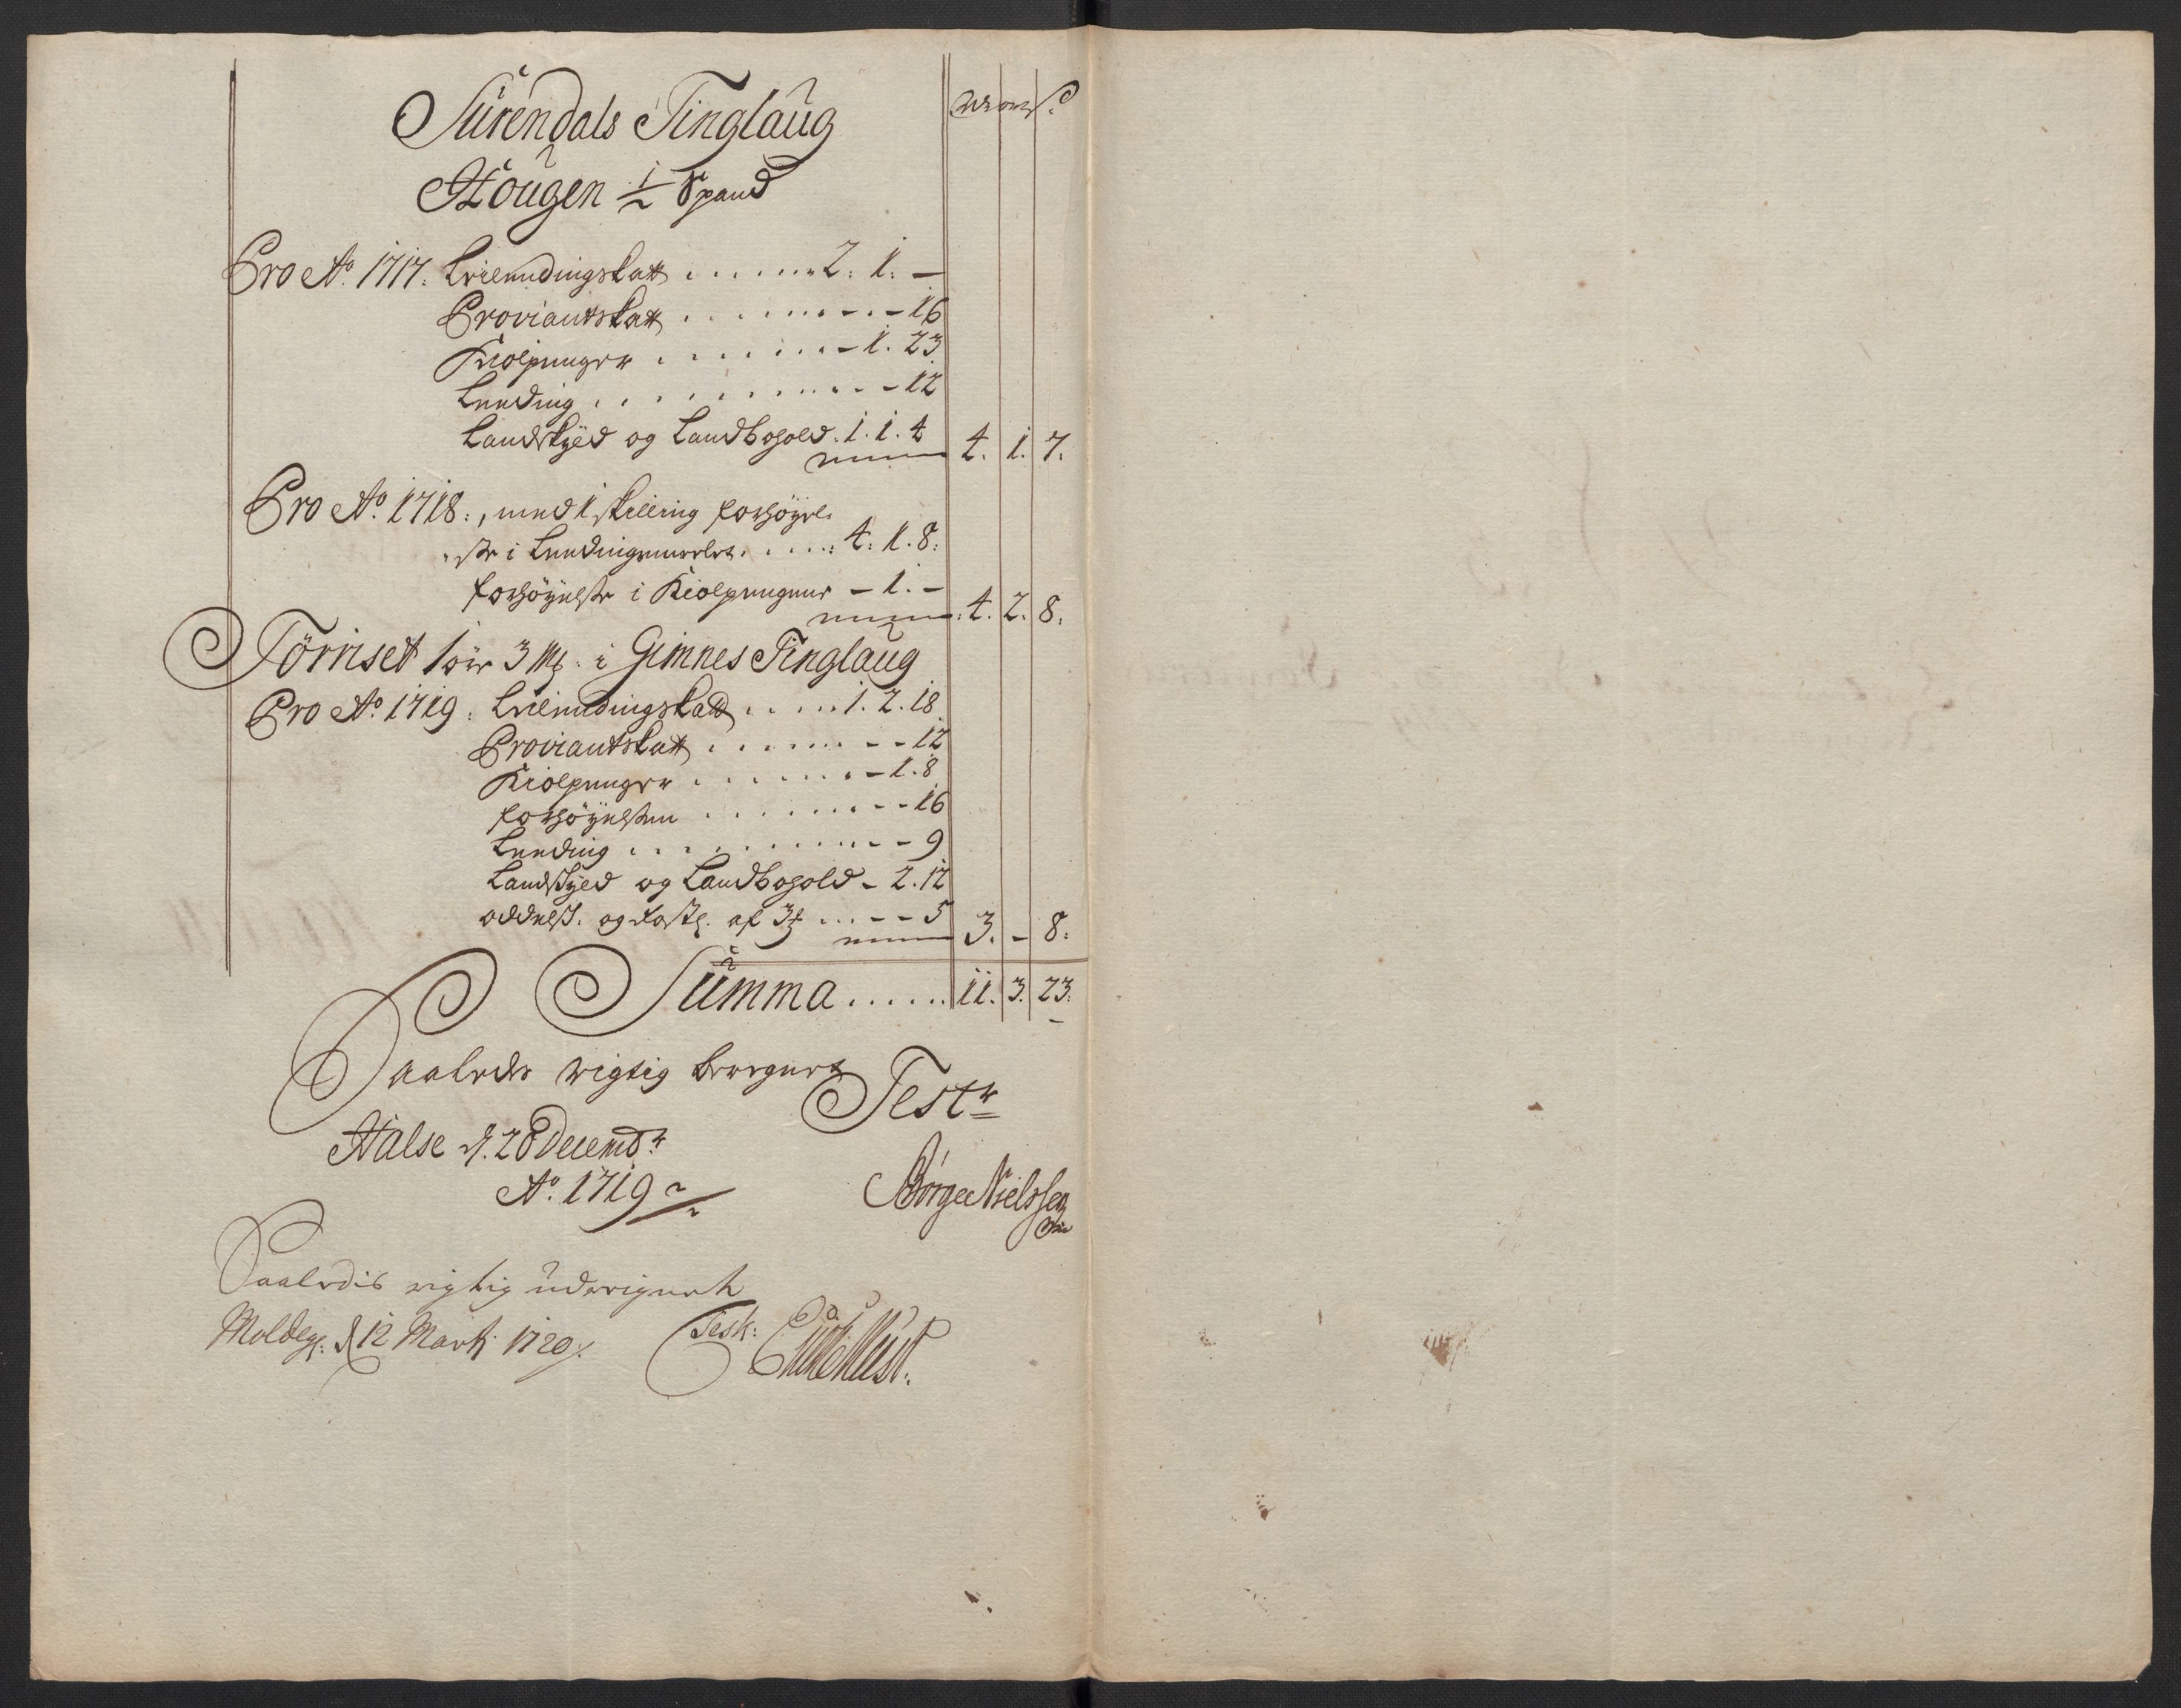 Rdr ort ß
Surendals Tinglaug
Hougen 1/2 Spand
Pro Ao. 1717. Leilendingskatt ...... 2. 1. –
Proviantskatt ........ – – 16
Kiolpenger ....... – 1. 23
Leeding .......... – – 12
Landskyld og Landbohold. 1. 1. 4 4. 1. 7.
Pro Ao. 1718:, med 1 skilling forhøyel-
se i Leedingen ..... 4. 1. 8.
forhøyelse i Kiolpengene – 1. – 4. 2. 8.
Tørriset 1 øre 3 Mk. i Gimnes Tinglaug
Pro Ao. 1719. Leilendingskatt ..... 1. 2. 18
Proviantskatt ........ – – 12
Kiolpenger ....... – 1. 8
forhøyelsen ........ – – 16
Leeding .......... – – 9
Landskyld og Landbohold – 2. 12
odelsk. og af ... – – 5 3. – 8.
Summa ...... 11. 3. 23.
Saaledes rigtig beregnet
Test
Halse d. 28 Decembr
Ao. 1719
Børge Nielssen
Saaledis rigtig uderignet
Moldeg. d 12 Marti 1720.
Test: